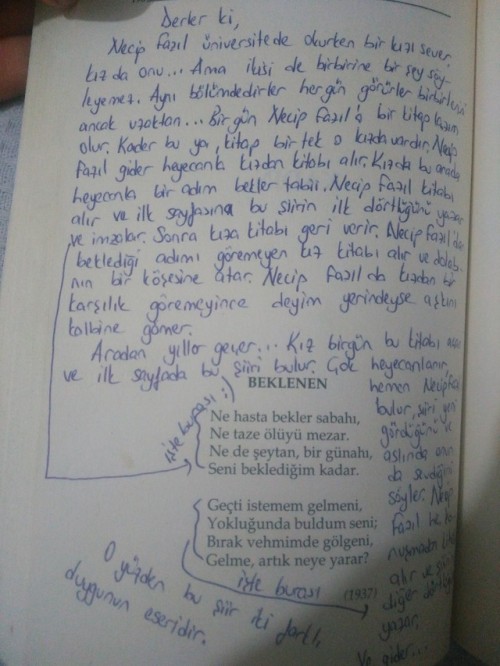 Derler ki,
Necip Fazıl üniversitede okurken bir kızı sever,
kız da onu... Ama ikisi de birbirine bir şey söy-
leyemez. Aynı bölümdedirler hergün görürler birbirlerini
ancak uzaktan... Bir gün Necip Fazıl'a bir kitap lazım
olur. Kader bu ya, kitap bir tek o kızda vardır. Necip
Fazıl gider heyecanla kızdan kitabı alır. Kız da bu arada
heyecanla bir adım bekler tabii. Necip Fazıl kitabı
alır ve ilk sayfasına bu şiirin ilk dörtlüğünü yazar
ve imzalar. Sonra kıza kitabı geri verir. Necip Fazıl'dan
beklediği adımı göremeyen kız kitabı alır ve dolabı-
nın bir köşesine atar. Necip Fazıl da kızdan bir
karşılık göremeyince deyim yerindeyse aşkını
kalbine gömer.
Aradan yıllar geçer... Kız birgün bu kitabı
ve ilk sayfada bu şiiri bulur. Çok heyecanlanır,
hemen Necip Fazıl
bulur, şiiri yeni
gördüğünü ve
aslında onun
da sevdiğini
söyler. Necip
Fazıl
kitabı
alır ve şiirin
diğer
yazar.
Ve gider...
BEKLENEN
işte burası :)
Ne hasta bekler sabahı,
Ne taze ölüyü mezar.
Ne de şeytan, bir günahı,
Seni beklediğim kadar.
Geçti istemem gelmeni,
Yokluğunda buldum seni;
Bırak vehmimde gölgeni,
Gelme, artık neye yarar?
(1937)
işte burası
O yüzden bu şiir iki farklı
duygunun eseridir.